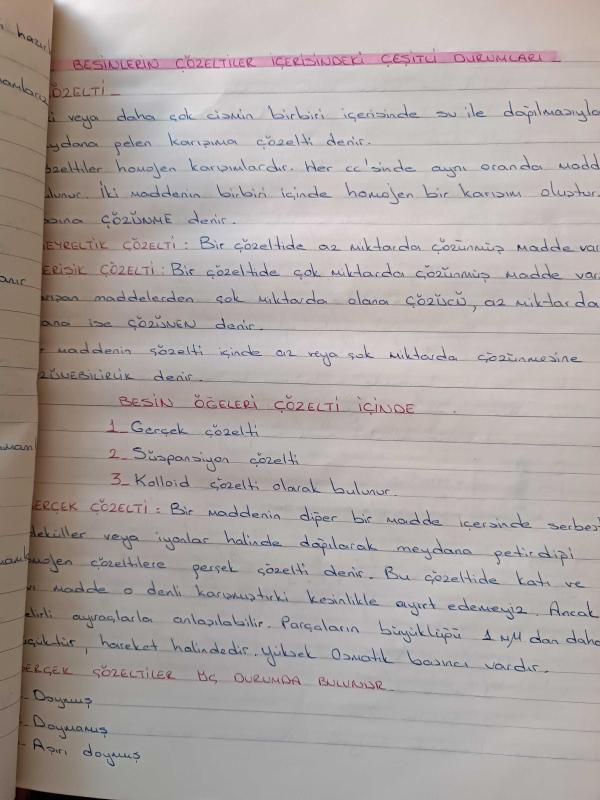 hazır
BESİNLERİN ÇÖZELTİLER İÇERİSİNDEKİ ÇEŞİTLİ DURUMLARI
ÖZELTİ
veya daha çok cismin birbiri içerisinde su ile dağılmasıyla
ydana gelen karışıma çözelti denir.
özeltiler homojen karışımlardır. Her cc'sinde aynı oranda madd
lunur. İki maddenin birbiri içinde homojen bir karışım oluştur.
asına ÇÖZÜNME denir.
EYRELTİK ÇÖZELTİ: Bir çözeltide az miktarda çözünmüş madde var
ERİŞİK ÇÖZELTİ: Bir çözeltide çok miktarda çözünmüş madde var
maddelerden çok miktarda olana ÇÖZÜCÜ, az miktarda
ana ise ÇÖZÜNEN denir.
maddenin çözelti içinde az veya çok miktarda çözünmesine
ZÜNEBİLİRLİK denir.
BESİN ÖĞELERİ ÇÖZELTİ İÇİNDE
1_ Gerçek çözelti
2_ Süspansiyon çözelti
3_ Kolloid çözelti olarak bulunur.
ERÇEK ÇÖZELTİ: Bir maddenin diğer bir madde içersinde serbes
leküller veya iyonlar halinde dağılarak meydana getirdiği
mojen çözeltilere gerçek çözelti denir. Bu çözeltide katı ve
madde o denli karışmıştırki kesinlikle ayırt edemeyiz. Ancak
elirli ayraçlarla anlaşılabilir. Parçaların büyüklüğü 1 dan daha
çüktür, hareket halindedir. Yüksek Osmatik basıncı vardır.
ERÇEK ÇÖZELTİLER ÜÇ DURUMDA BULUNUR
- Doymuş
- Doymamış
- Aşırı doymuş